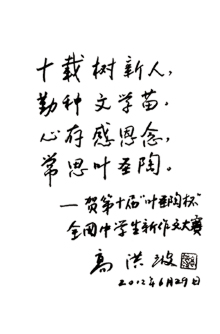 十载树新人，
勤种文学苗。
心存感恩念，
常思叶圣陶。
——贺第十届“叶圣陶杯”
全国中学生新作文大赛
高洪波
2012年6月29日